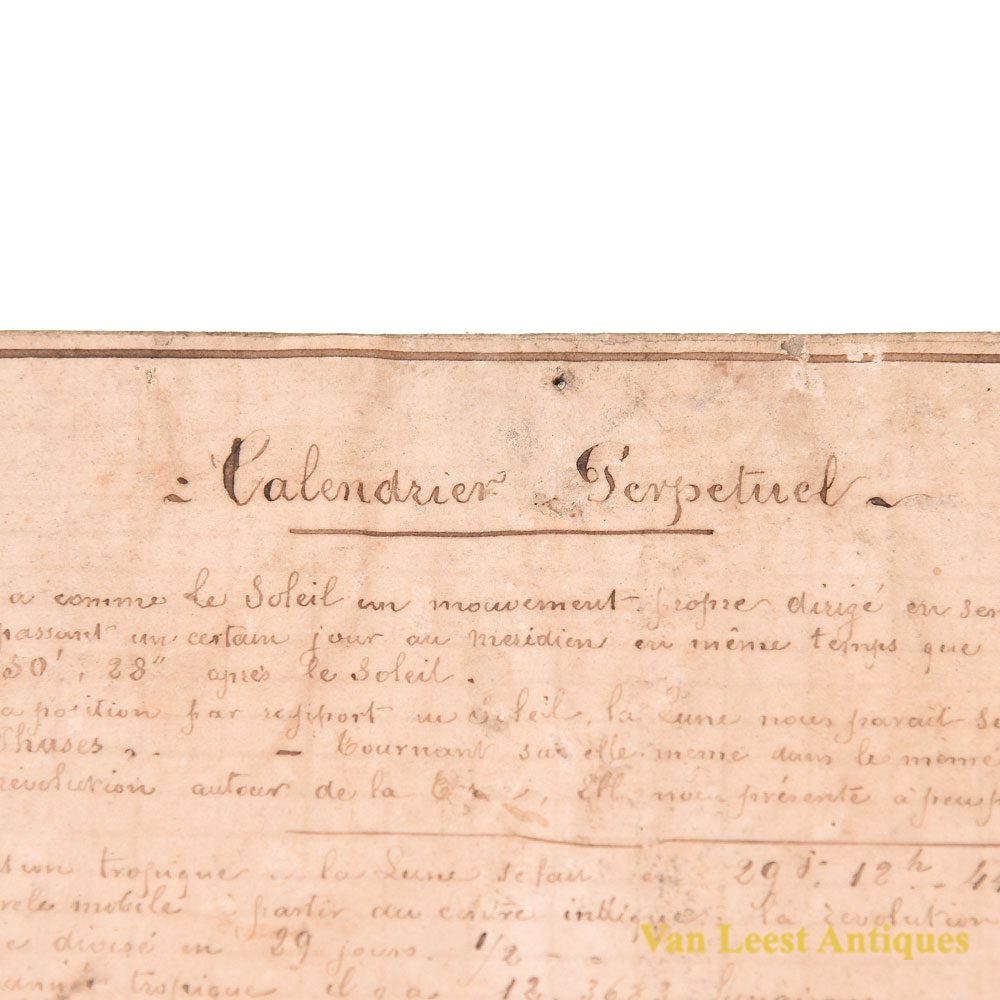 Calendrier Perpetuel
a comme le Soleil un mouvement propre dirigé en sen
passant un certain jour au meridien en même temps que
50', 28" après le Soleil.
a position par rapport au Soleil, la Lune nous parait se
Phases, . — Tournant sur elle même dans le même
révolution autour de la Elle nous présente à peu p
tropique la Lune se fait en 29 j. 12 h. 44
mobile à partir du centre indique la revolution
e divisé en 29 jours. 1/2 - -
tropique il y a 12, 3683
Van Leest Antiques